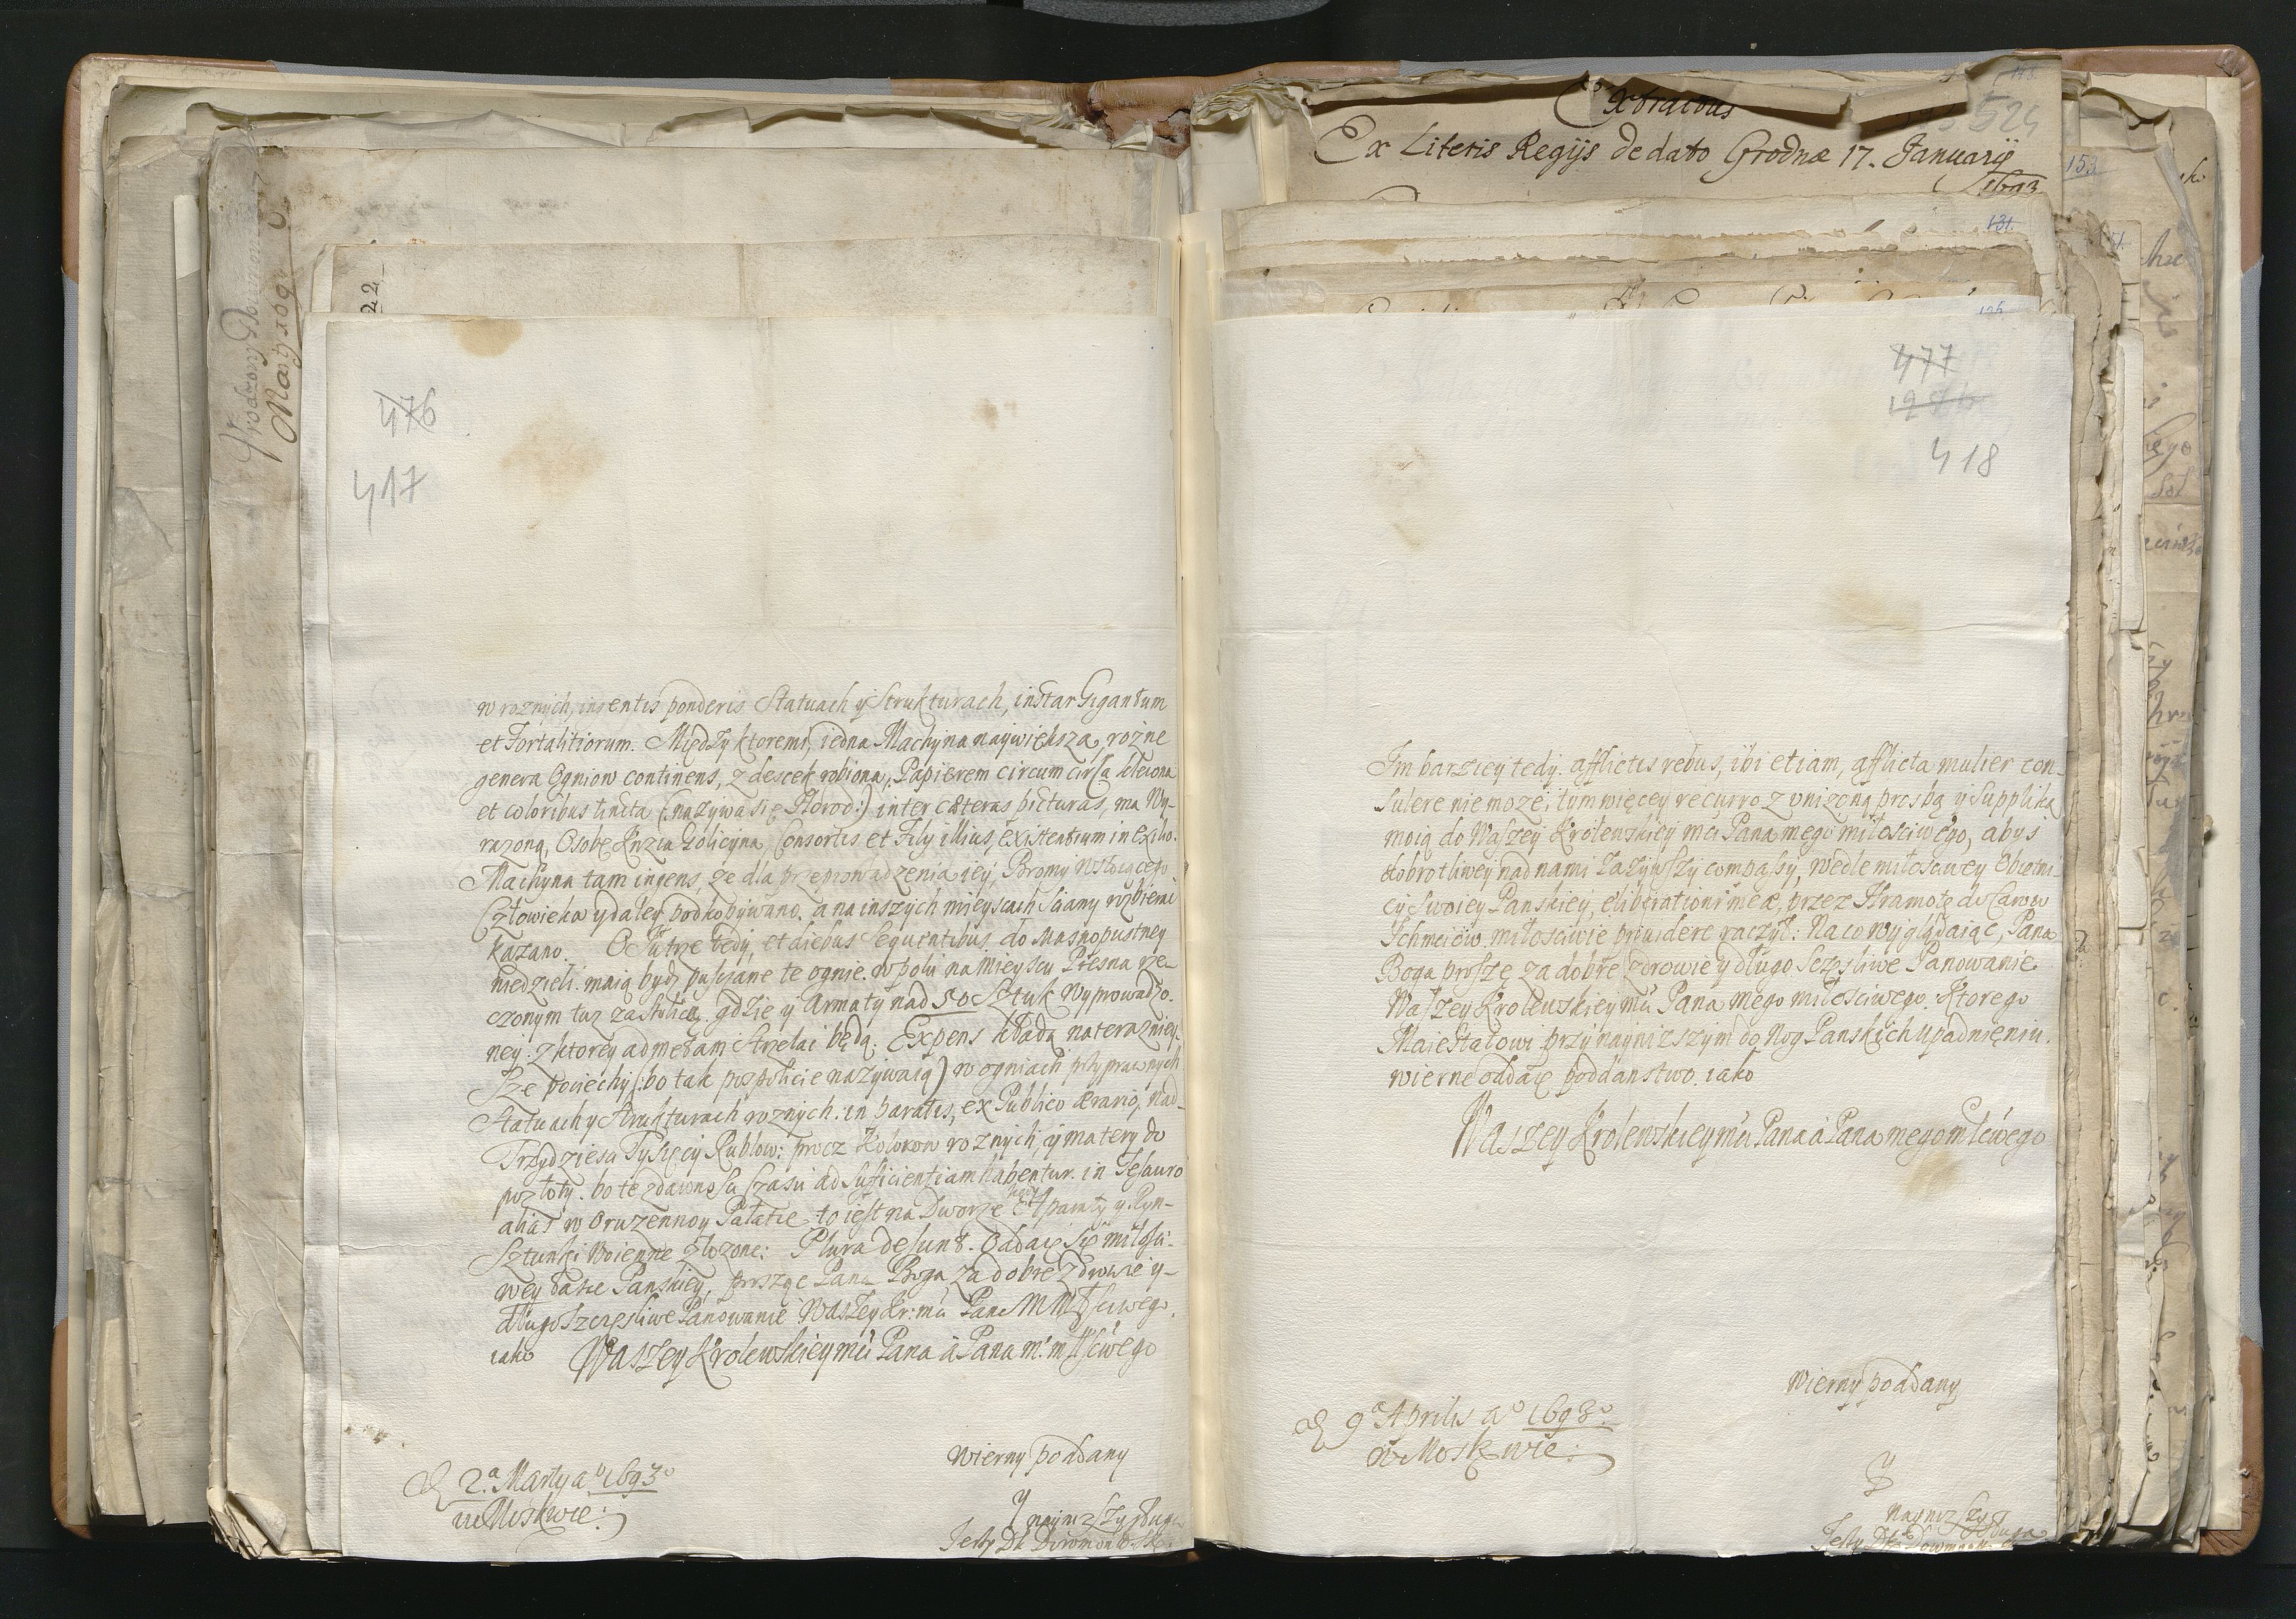 476
417
w roznych, ingentis ponderis Statuach y Strukturach, instar Gigantum
et Fortalitiorum. Między ktoremi, iedna Machyna naywieksza, rożne
genera Ogniow continens, z descek robiona, Papierem circum circa kleiona
et coloribus tincta (: nazywa się Horod:) inter cæteras picturas, ma Wy-
razoną, Osobę Knzia Golicyna, Consortis et Fily illius, existentium in exilio.
Machyna tam ingens, ze dla przeprowadzenia iey, Bromy Wstoiącego
Człowieka y daley podkopywano. a na inszych mieyscach Sciany rozbierać
kazano. O Jutrze tedy, et diebus Sequentibus. do Masnopustney
niedzieli. maią bydz puszczane te ognie. w polu na Mieyscu Presna rze-
czonym tuz za stolicą. gdzie y Armaty nad 50 Sztuk Wyprowadzo.
ney. z ktorey ad metam Strzelać będą. Expens kładą na terazniey-
sze pociechy (: bo tak pospolicie nazywaią) w ogniach przyprawnych
Statuach y Strukturach roznych. in paratis, ex Publico ærario, nad-
Trzydziesci Tysięcy Rublow: procz Kolorow roznych, y matery do
pozłoty. bo te zdawnego Czasu ad sufficientiam habentur. in Tesauro
alias w Oruzennoy Pałacie to iest na Dworze Aparaty y Ryn-
sztunki Woienne złozone: Plura desunt. Oddaię się miłości-
wey Łasce Panskiey, proszące Pana Boga za dobre zdrowie y-
długo szczęsliwe Panowanie Waszey Kr: mći Pana M Młsciwego,
iako Waszey Krolewskiey mći Pana à Pana m. młśćwego
Wierny poddany
D 2.a Marty a.o 1693.o
w Moskwie:
Y nayniższy sługa
Extractus
Ex Literis Regijs de dato Grodnæ 17. Januarij
1693
524
153
131
477
418
Im barziey tedy. afflictis rebus, ibi etiam, afflicta mulier con-
sulere nie moze, tym więcey recurro z vnizoną prosbą y Suppliką
moią do Waszey Krolewskiey mći Pana mego miłościwego, abyś
dobrotliwey nad nami Zazywszy compassy, wedle miłosciwey Obietni-
cy Swoiey Panskiey, eliberationi meæ, przez Hramotę do Carow
Ichmciow. miłosciwie providere raczył: Na co wyglądaiąc, Pana
Boga proszę za dobre zdrowie y długo Szczęsliwe Panowanie
Waszey Krolewskiey mći Pana mego miłosciwego. Ktorego
Maiestatowi przy nayniższym do Nog Panskich upadnieniu.
wierne oddaię poddanstwo. iako
Waszey Krolewskiey mći Pana à Pana mego młćwego
Wierny poddany
D 9.a Aprilis a.o 1693.o
w Moskwie:
Y
nayniższy sługa